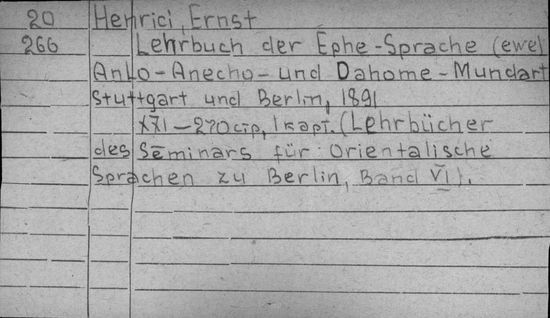 20 Henrici, Ernst
266 Lehrbuch der Ephe-Sprache (ewe)
Anlo-Anecho- und Dahome-Mundart
Stuttgart und Berlin, 1891
XXI-270 стр, 1 карт. (Lehrbücher
des Seminars für Orientalische
Sprachen zu Berlin, Band VI).